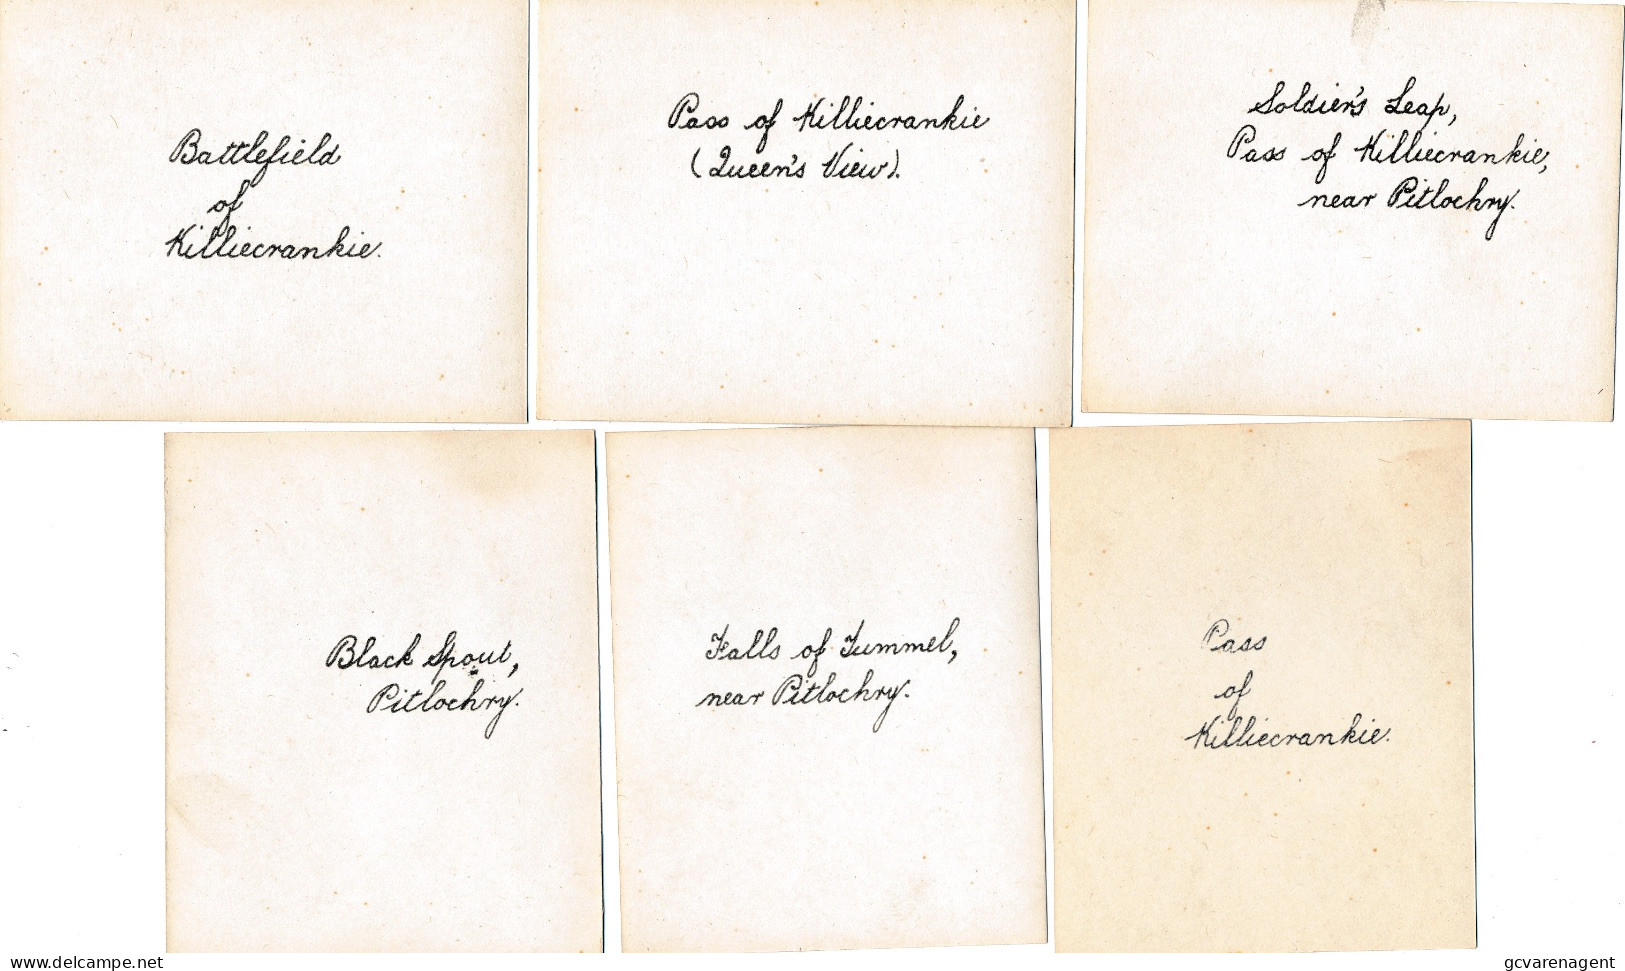 Battlefield
of
Killiecrankie.
Pass of Killiecrankie
(Queen's View).
Soldier's Leap,
Pass of Killiecrankie,
near Pitlochry.
Black Spout,
Pitlochry.
Falls of Tummel,
near Pitlochry.
Pass
of
Killiecrankie.
www.delcampe.net
gcvarenagent